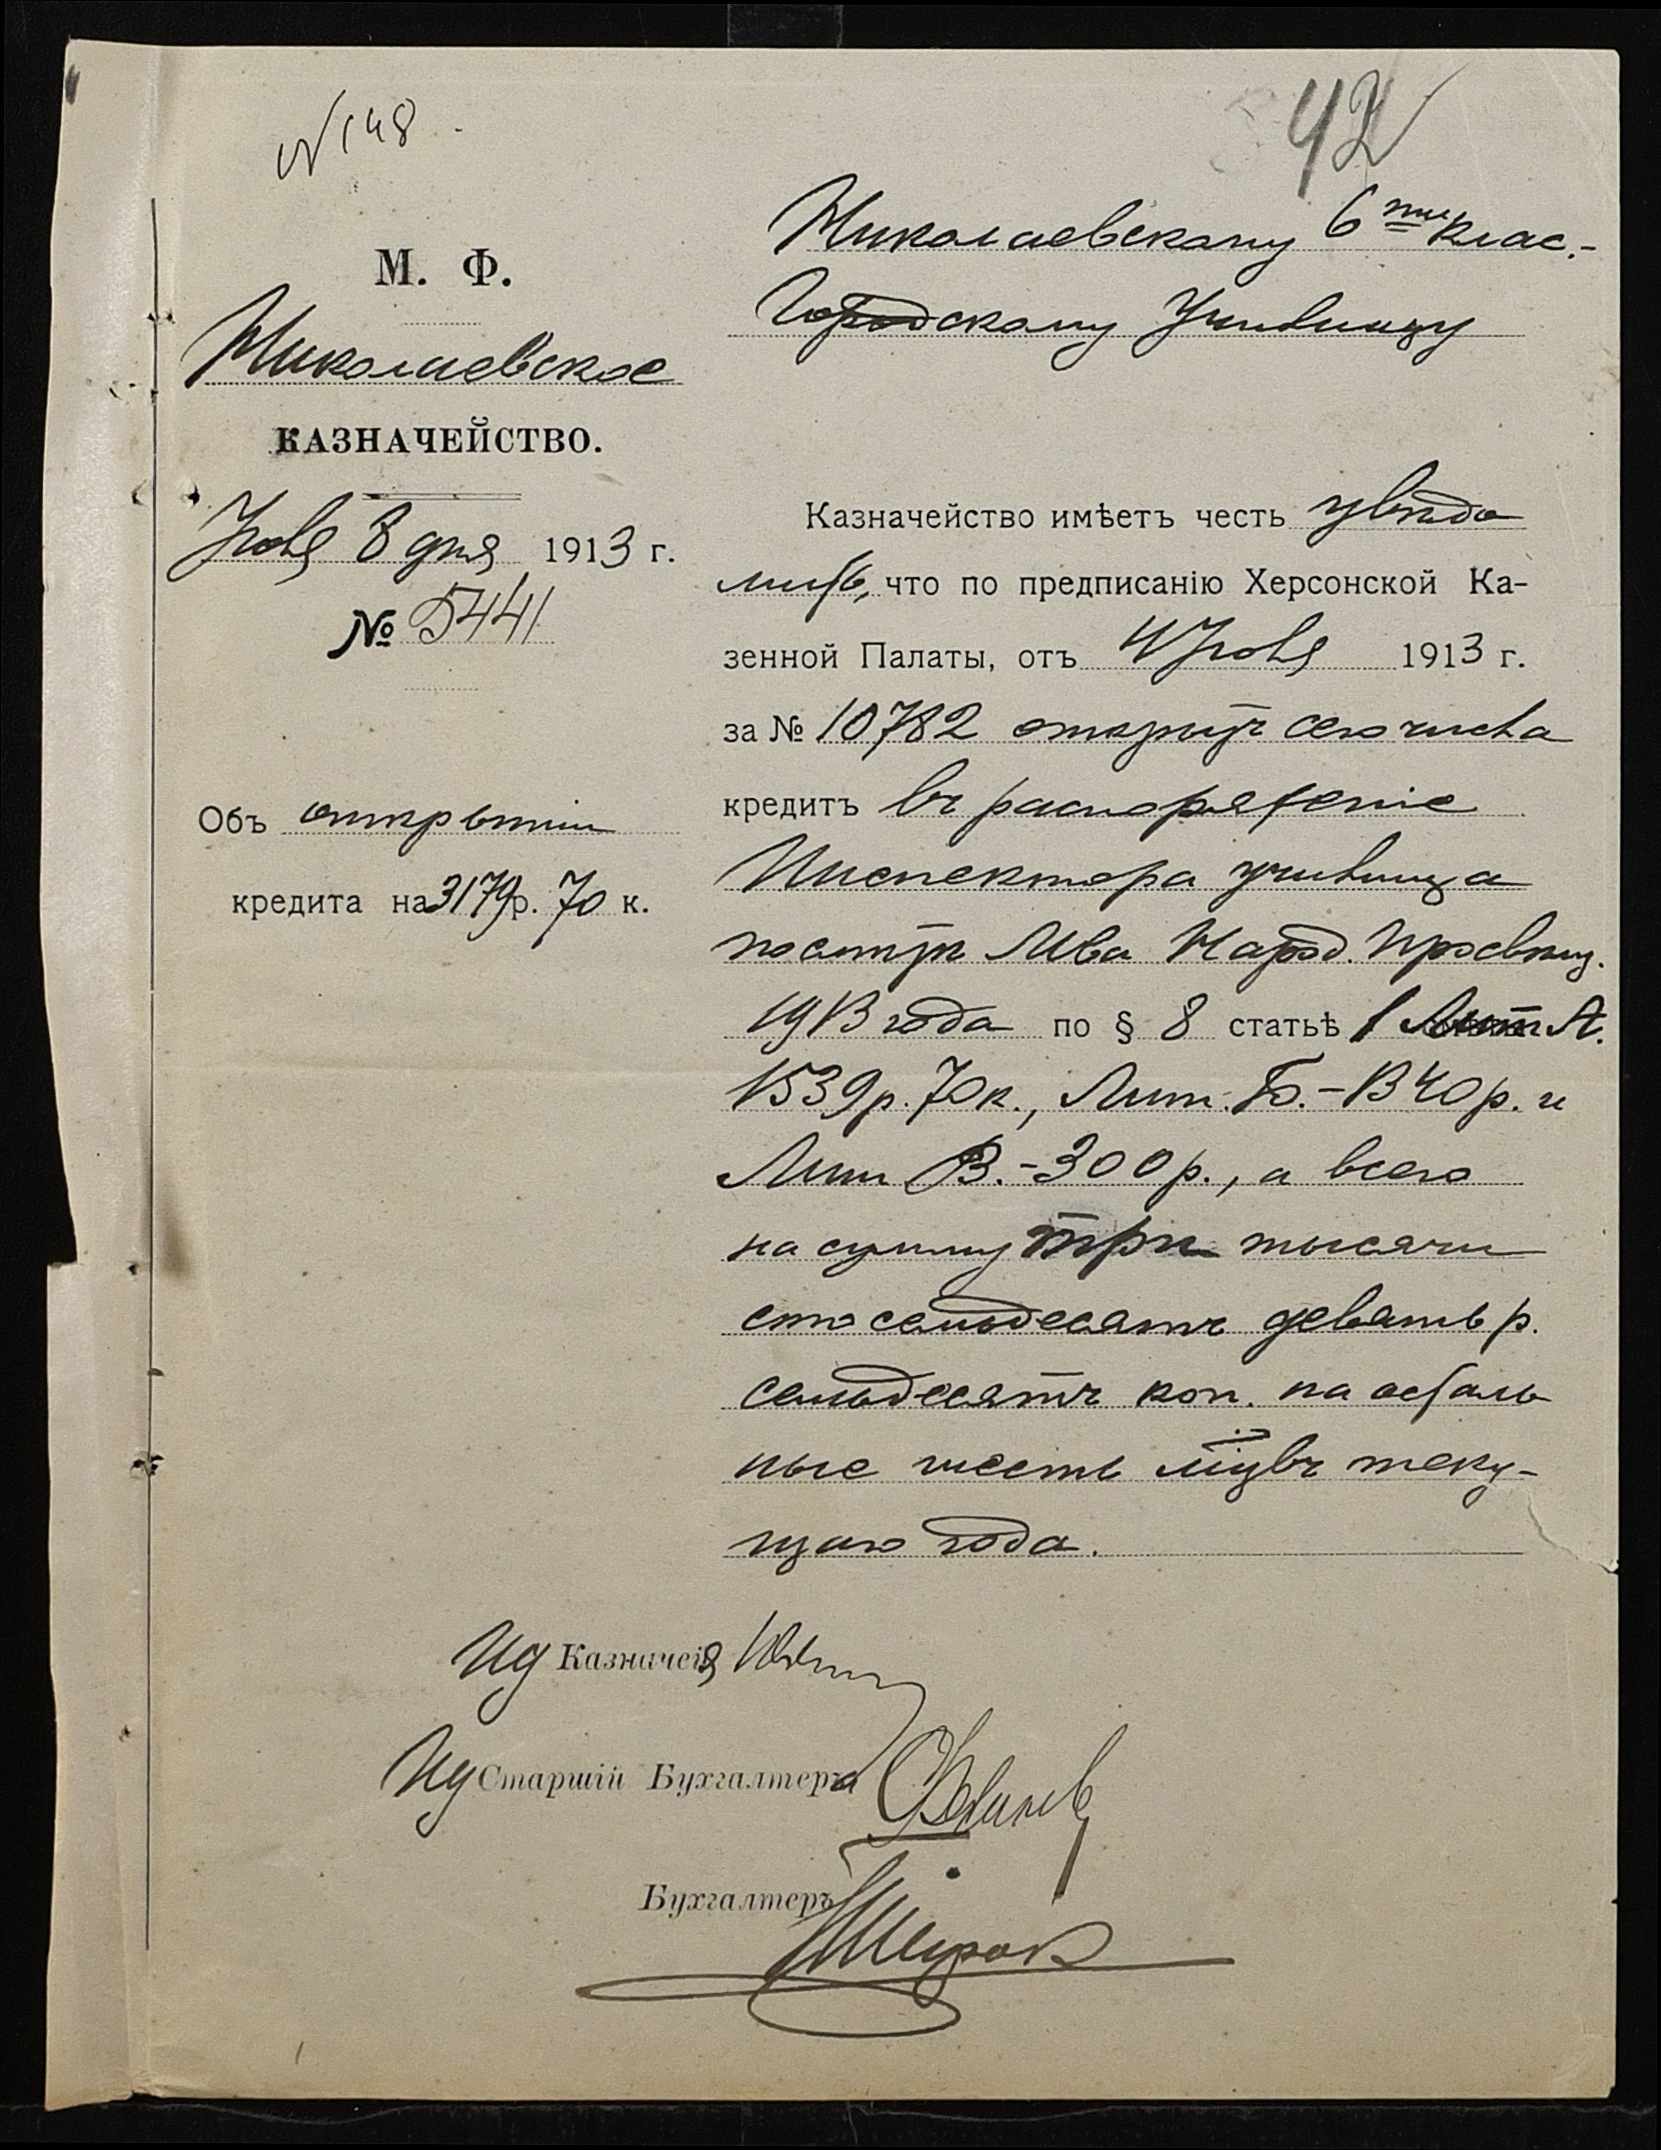 № 148
42
М. Ф.
Николаевское
КАЗНАЧЕЙСТВО.
Іюля 8 дня 1913 г.
№ 5441
Объ открытіи
кредита на 3179 р. 70 к.
Николаевскому 6ти клас.-
Городскому Училищу
Казначейство имѣетъ честь увѣдо
мить, что по предписанію Херсонской Ка-
зенной Палаты, отъ 4 Іюля 1913 г.
за № 10782 открытъ сего числа
кредитъ въ распоряженіе
Инспектора училища
по смѣтѣ М-ва Народ. Просвѣщ.
1913 года по § 8 статьѣ 1 Лит А.
1539 р. 70 к., Лит. Б. - 1340 р. и
Лит В. - 300 р., а всего
на сумму три тысячи
сто семьдесятъ девять р.
семьдесятъ коп. на осталь
ные шесть м-цевъ теку-
щаго года.
Ид Казначея
Ид Старшій Бухгалтера
Бухгалтеръ